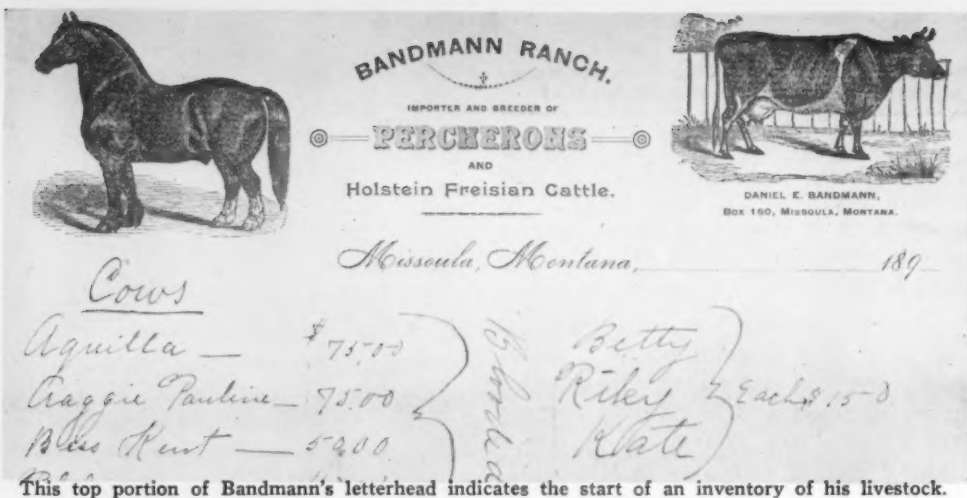 BANDMANN RANCH.
IMPORTER AND BREEDER OF
PERCHERONS
AND
Holstein Freisian Cattle.
DANIEL E. BANDMANN,
BOX 160, MISSOULA, MONTANA.
Missoula, Montana, 189
Cows
Aquilla — $ 75.00
Aaggie Pauline — 75.00
Bess Kent — 50.00
Blooded
Betty
Riley
Kate
Each $ 150
This top portion of Bandmann's letterhead indicates the start of an inventory of his livestock.